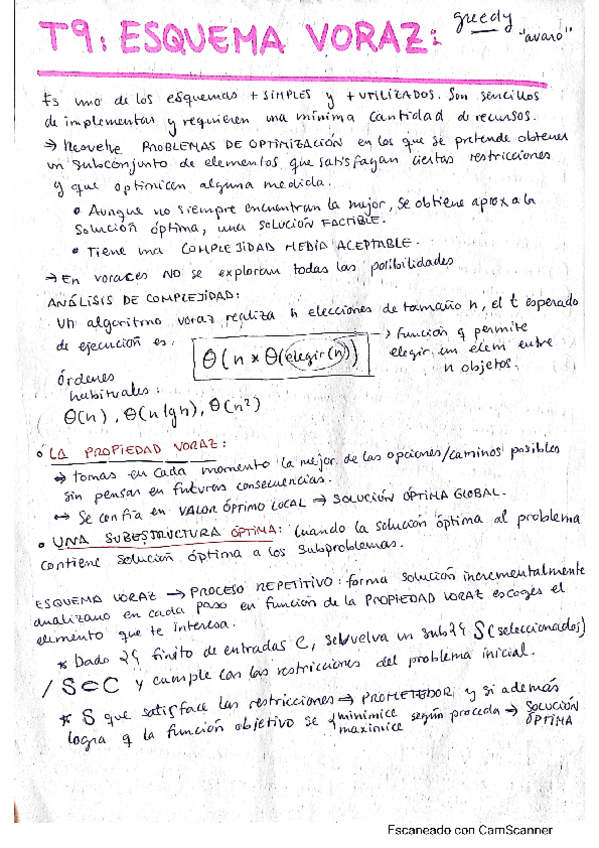 T9: ESQUEMA VORAZ: greedy
"avaro"
Es uno de los esquemas + SIMPLES y + UTILIZADOS. Son sencillos
de implementar y requieren una mínima cantidad de recursos.
→ Resuelve PROBLEMAS DE OPTIMIZACIÓN en los que se pretende obtener
un subconjunto de elementos que satisfagan ciertas restricciones
y que optimicen alguna medida.
• Aunque no siempre encuentran la mejor, se obtiene aprox a la
solución óptima, una SOLUCIÓN FACTIBLE.
• Tiene una COMPLEJIDAD MEDIA ACEPTABLE.
→ En voraces NO se exploran todas las posibilidades
ANÁLISIS DE COMPLEJIDAD:
Un algoritmo voraz realiza n elecciones de tamaño n, el t esperado
de ejecución es: Θ(n * Θ(elegir(n))) → función q permite
elegir un elem entre
n objetos.
Órdenes
habituales:
Θ(n), Θ(n lg n), Θ(n²)
• LA PROPIEDAD VORAZ:
→ tomas en cada momento la mejor de las opciones/caminos posibles
sin pensar en futuras consecuencias.
↔ Se confía en VALOR ÓPTIMO LOCAL → SOLUCIÓN ÓPTIMA GLOBAL.
• UNA SUBESTRUCTURA ÓPTIMA: Cuando la solución óptima al problema
contiene solución óptima a los subproblemas.
ESQUEMA VORAZ → PROCESO REPETITIVO: forma solución incrementalmente
analizano en cada paso en función de la PROPIEDAD VORAZ escoges el
elemento que te interesa.
* Dado finito de entradas C, se vuelva un S (seleccionados)
/ S ⊂ C y cumple con las restricciones del problema inicial.
* S que satisface las restricciones → PROMETEDOR y si además
logra q la función objetivo se { minimice
maximice según proceda → SOLUCIÓN
ÓPTIMA
Escaneado con CamScanner